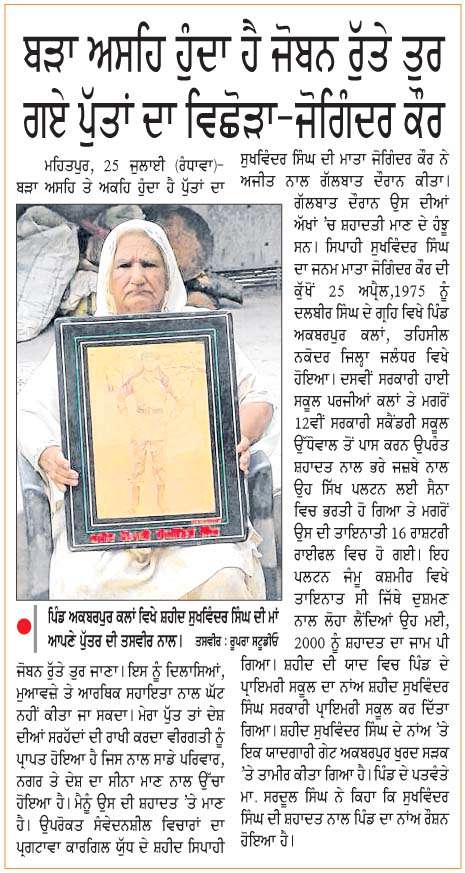 ਬੜਾ ਅਸਹਿ ਹੁੰਦਾ ਹੈ ਜੋਬਨ ਰੁੱਤੇ ਤੁਰ
ਗਏ ਪੁੱਤਾਂ ਦਾ ਵਿਛੋੜਾ-ਜੋਗਿੰਦਰ ਕੌਰ
ਮਹਿਤਪੁਰ, 25 ਜੁਲਾਈ (ਰੰਧਾਵਾ)-
ਬੜਾ ਅਸਹਿ ਤੇ ਅਕਹਿ ਹੁੰਦਾ ਹੈ ਪੁੱਤਾਂ ਦਾ
ਪਿੰਡ ਅਕਬਰਪੁਰ ਕਲਾਂ ਵਿਖੇ ਸ਼ਹੀਦ ਸੁਖਵਿੰਦਰ ਸਿੰਘ ਦੀ ਮਾਂ
ਆਪਣੇ ਪੁੱਤਰ ਦੀ ਤਸਵੀਰ ਨਾਲ। ਤਸਵੀਰ : ਰੂਪਰਾ ਸਟੂਡੀਓ
ਜੋਬਨ ਰੁੱਤੇ ਤੁਰ ਜਾਣਾ। ਇਸ ਨੂੰ ਦਿਲਾਸਿਆਂ,
ਮੁਆਵਜ਼ੇ ਤੇ ਆਰਥਿਕ ਸਹਾਇਤਾ ਨਾਲ ਘੱਟ
ਨਹੀਂ ਕੀਤਾ ਜਾ ਸਕਦਾ। ਮੇਰਾ ਪੁੱਤ ਤਾਂ ਦੇਸ਼
ਦੀਆਂ ਸਰਹੱਦਾਂ ਦੀ ਰਾਖੀ ਕਰਦਾ ਵੀਰਗਤੀ ਨੂੰ
ਪ੍ਰਾਪਤ ਹੋਇਆ ਹੈ ਜਿਸ ਨਾਲ ਸਾਡੇ ਪਰਿਵਾਰ,
ਨਗਰ ਤੇ ਦੇਸ਼ ਦਾ ਸੀਨਾ ਮਾਣ ਨਾਲ ਉੱਚਾ
ਹੋਇਆ ਹੈ। ਮੈਨੂੰ ਉਸ ਦੀ ਸ਼ਹਾਦਤ 'ਤੇ ਮਾਣ
ਹੈ। ਉਪਰੋਕਤ ਸੰਵੇਦਨਸ਼ੀਲ ਵਿਚਾਰਾਂ ਦਾ
ਪ੍ਰਗਟਾਵਾ ਕਾਰਗਿਲ ਯੁੱਧ ਦੇ ਸ਼ਹੀਦ ਸਿਪਾਹੀ
ਸੁਖਵਿੰਦਰ ਸਿੰਘ ਦੀ ਮਾਤਾ ਜੋਗਿੰਦਰ ਕੌਰ ਨੇ
ਅਜੀਤ ਨਾਲ ਗੱਲਬਾਤ ਦੌਰਾਨ ਕੀਤਾ।
ਗੱਲਬਾਤ ਦੌਰਾਨ ਉਸ ਦੀਆਂ
ਅੱਖਾਂ 'ਚ ਸ਼ਹਾਦਤੀ ਮਾਣ ਦੇ ਹੰਝੂ
ਸਨ। ਸਿਪਾਹੀ ਸੁਖਵਿੰਦਰ ਸਿੰਘ
ਦਾ ਜਨਮ ਮਾਤਾ ਜੋਗਿੰਦਰ ਕੌਰ ਦੀ
ਕੁੱਖੋਂ 25 ਅਪ੍ਰੈਲ,1975 ਨੂੰ
ਦਲਬੀਰ ਸਿੰਘ ਦੇ ਗ੍ਰਹਿ ਵਿਖੇ ਪਿੰਡ
ਅਕਬਰਪੁਰ ਕਲਾਂ, ਤਹਿਸੀਲ
ਨਕੋਦਰ ਜਿਲ੍ਹਾ ਜਲੰਧਰ ਵਿਖੇ
ਹੋਇਆ। ਦਸਵੀਂ ਸਰਕਾਰੀ ਹਾਈ
ਸਕੂਲ ਪਰਜੀਆਂ ਕਲਾਂ ਤੇ ਮਗਰੋਂ
12ਵੀਂ ਸਰਕਾਰੀ ਸਕੈਂਡਰੀ ਸਕੂਲ
ਉੱਧੋਵਾਲ ਤੋਂ ਪਾਸ ਕਰਨ ਉਪਰੰਤ
ਸ਼ਹਾਦਤ ਨਾਲ ਭਰੇ ਜਜ਼ਬੇ ਨਾਲ
ਉਹ ਸਿੱਖ ਪਲਟਨ ਲਈ ਸੈਨਾ
ਵਿਚ ਭਰਤੀ ਹੋ ਗਿਆ ਤੇ ਮਗਰੋਂ
ਉਸ ਦੀ ਤਾਇਨਾਤੀ 16 ਰਾਸ਼ਟਰੀ
ਰਾਈਫਲ ਵਿਚ ਹੋ ਗਈ। ਇਹ
ਪਲਟਨ ਜੰਮੂ ਕਸ਼ਮੀਰ ਵਿਖੇ
ਤਾਇਨਾਤ ਸੀ ਜਿੱਥੇ ਦੁਸ਼ਮਣ
ਨਾਲ ਲੋਹਾ ਲੈਂਦਿਆਂ ਉਹ ਮਈ,
2000 ਨੂੰ ਸ਼ਹਾਦਤ ਦਾ ਜਾਮ ਪੀ
ਗਿਆ। ਸ਼ਹੀਦ ਦੀ ਯਾਦ ਵਿਚ ਪਿੰਡ ਦੇ
ਪ੍ਰਾਇਮਰੀ ਸਕੂਲ ਦਾ ਨਾਂਅ ਸ਼ਹੀਦ ਸੁਖਵਿੰਦਰ
ਸਿੰਘ ਸਰਕਾਰੀ ਪ੍ਰਾਇਮਰੀ ਸਕੂਲ ਕਰ ਦਿੱਤਾ
ਗਿਆ। ਸ਼ਹੀਦ ਸੁਖਵਿੰਦਰ ਸਿੰਘ ਦੇ ਨਾਂਅ 'ਤੇ
ਇਕ ਯਾਦਗਾਰੀ ਗੇਟ ਅਕਬਰਪੁਰ ਖੁਰਦ ਸੜਕ
'ਤੇ ਤਾਮੀਰ ਕੀਤਾ ਗਿਆ ਹੈ। ਪਿੰਡ ਦੇ ਪਤਵੰਤੇ
ਮਾ. ਸਰਦੂਲ ਸਿੰਘ ਨੇ ਕਿਹਾ ਕਿ ਸੁਖਵਿੰਦਰ
ਸਿੰਘ ਦੀ ਸ਼ਹਾਦਤ ਨਾਲ ਪਿੰਡ ਦਾ ਨਾਂਅ ਰੌਸ਼ਨ
ਹੋਇਆ ਹੈ।